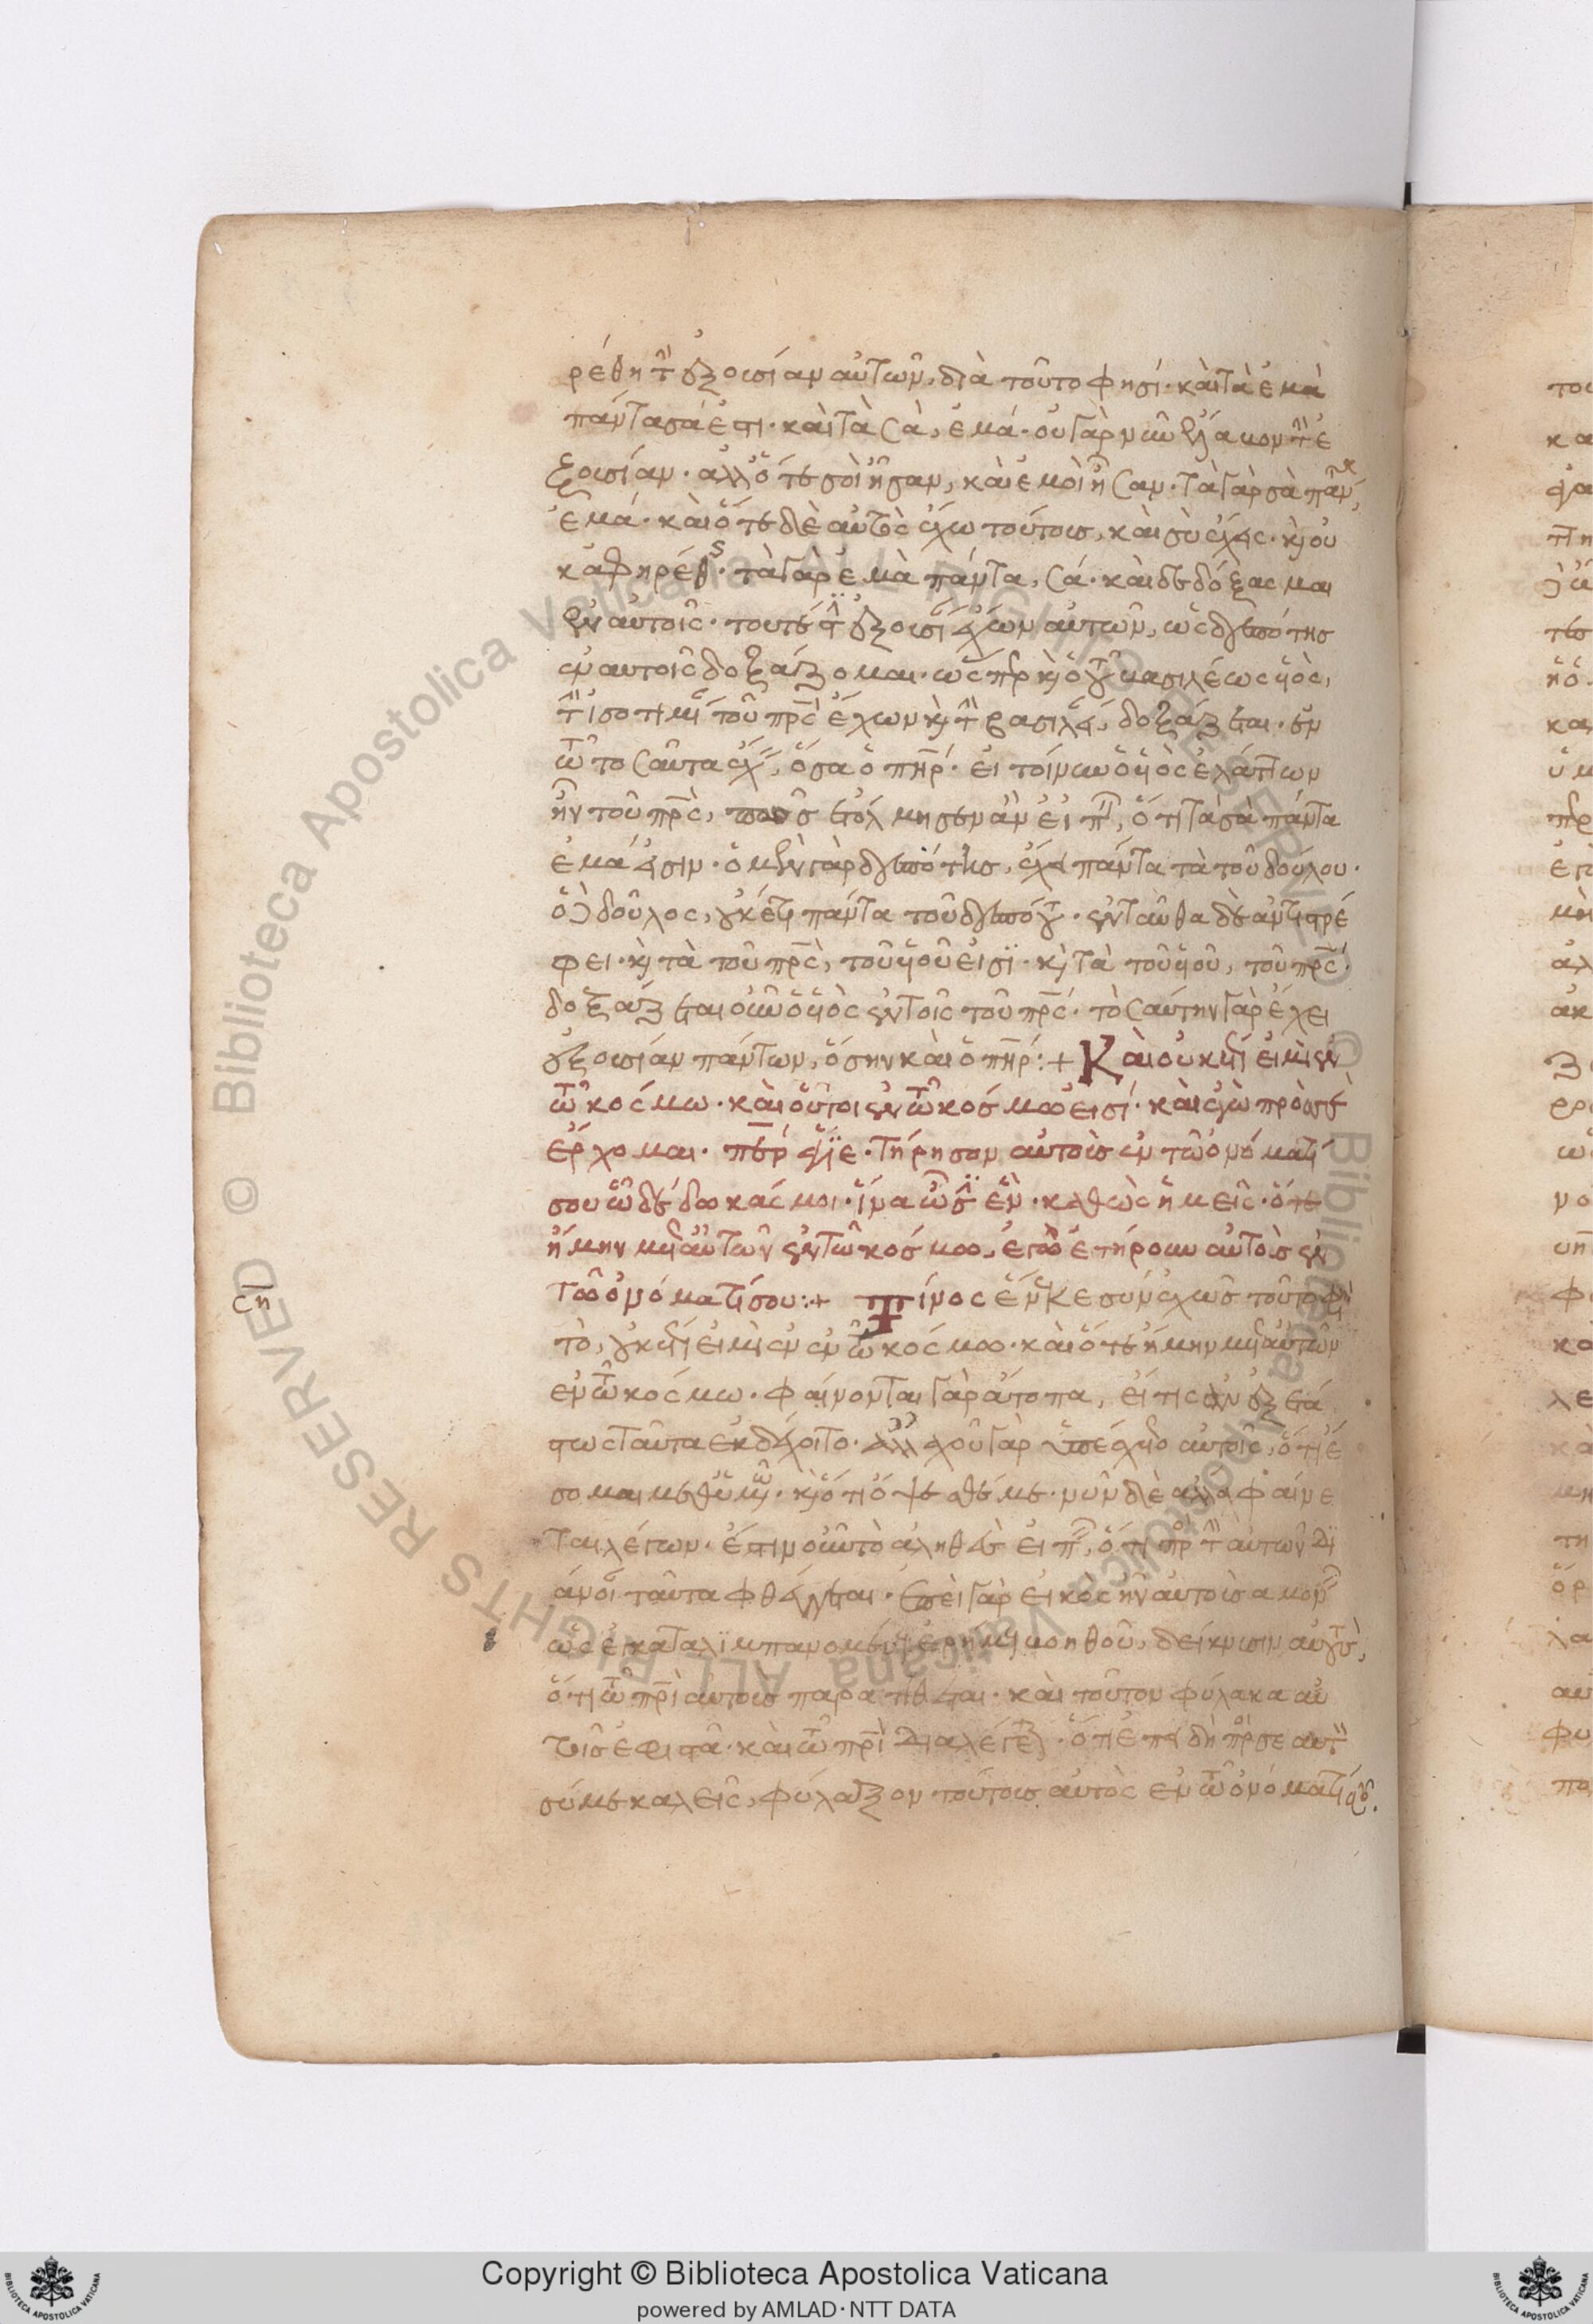 ρέθη τὴν ἐξουσίαν αὐτῶν, διὰ τοῦτο φησί· καὶ τὰ ἐμὰ
πάντα σά ἐστι· καὶ τὰ σὰ, ἐμά· οὐ γὰρ νῦν ἔλαβον τὴν ἐ
ξουσίαν· ἀλλ' ὅτε σοὶ ἦσαν, καὶ ἐμοὶ ἦσαν· τὰ γὰρ σὰ πάντα,
ἐμά· καὶ ὅτε δὲ αὐτὸς ἔχω τούτους, καὶ σὺ ἔχεις· καὶ οὐ
καθηρέθης· τὰ γὰρ ἐμὰ πάντα, σά· καὶ δεδόξασμαι
ἐν αὐτοῖς· τουτέστιν ἐξουσίαν ἔχων αὐτῶν, ὡς δεσπότης
ἐν αὐτοῖς δοξάζομαι· ὥσπερ καὶ ὁ τοῦ βασιλέως υἱὸς,
τὴν ἰσοτιμίαν τοῦ πατρὸς ἔχων καὶ τὴν βασιλείαν, δοξάζεται· ἐν
τῷ τοσαῦτα ἔχειν, ὅσα ὁ πατήρ· εἰ τοίνυν ὁ υἱὸς ἐλάττων
ἦν τοῦ πατρὸς, πῶς ἐτόλμησεν ἂν εἰπεῖν, ὅτι τὰ σὰ πάντα
ἐμά εἰσιν· ὁ μὲν γὰρ δεσπότης, ἔχει πάντα τὰ τοῦ δούλου·
ὁ δὲ δοῦλος, οὐκέτι πάντα τοῦ δεσπότου· ἐνταῦθα δὲ ἀντιστρέ
φει· καὶ τὰ τοῦ πατρὸς, τοῦ υἱοῦ εἰσι· καὶ τὰ τοῦ υἱοῦ, τοῦ πατρός·
δοξάζεται οὖν ὁ υἱὸς ἐν τοῖς τοῦ πατρός· τοσαύτην γὰρ ἔχει
ἐξουσίαν πάντων, ὅσην καὶ ὁ πατήρ:+ Καὶ οὐκέτι εἰμὶ ἐν
τῷ κόσμω· καὶ οὗτοι ἐν τῷ κόσμω εἰσί· καὶ ἐγὼ πρὸς σὲ
ἔρχομαι· πάτερ ἅγιε· τήρησον αὐτοὺς ἐν τῷ ὀνόματί
σου ᾧ δέδωκάς μοι· ἵνα ὦσιν ἓν· καθὼς ἡμεῖς· ὅτε
ἤμην μετ' αὐτῶν ἐν τῷ κόσμω, ἐγὼ ἐτήρουν αὐτοὺς ἐν
τῷ ὀνόματί σου:+ Τίνος ἕνεκε συνεχῶς τοῦτο φησὶ
τὸ, οὐκέτι εἰμὶ ἐν ἐν τῷ κόσμω· καὶ ὅτε ἤμην μετ' αὐτῶν
ἐν τῷ κόσμω· φαίνονται γὰρ ἄτοπα, εἴ τις ἀνεξετά
στως ταῦτα ἐκδέχοιτο· ἀλλαχοῦ γὰρ ὑπέσχετο αὐτοῖς, ὅτι ἔ
σομαι μεθ' ὑμῶν· καὶ ὅτι ὄψεσθέ με· νῦν δὲ ἄλλα φαίνε
ται λέγων· ἔστιν οὖν τὸ ἀληθὲς εἰπεῖν, ὅτι πρὸς τὴν αὐτῶν δι
άνοιαν ταῦτα φθέγγεται· ἐπεὶ γὰρ εἰκὸς ἦν αὐτοὺς
ὡς ἐγκαταλιμπανομένους ἐρήμους βοηθοῦ, δείκνυσιν αὐτοῖς,
ὅτι τῷ πατρὶ αὐτοὺς παρατίθεται· καὶ τοῦτον φύλακα αὐ
τοῖς ἐφιστᾷ· καὶ τῷ πατρὶ διαλέγεται· ὅτι ἐπειδὴ πρός σε
σύ με καλεῖς, φύλαξον τούτους αὐτὸς ἐν τῷ ὀνόματί σου.